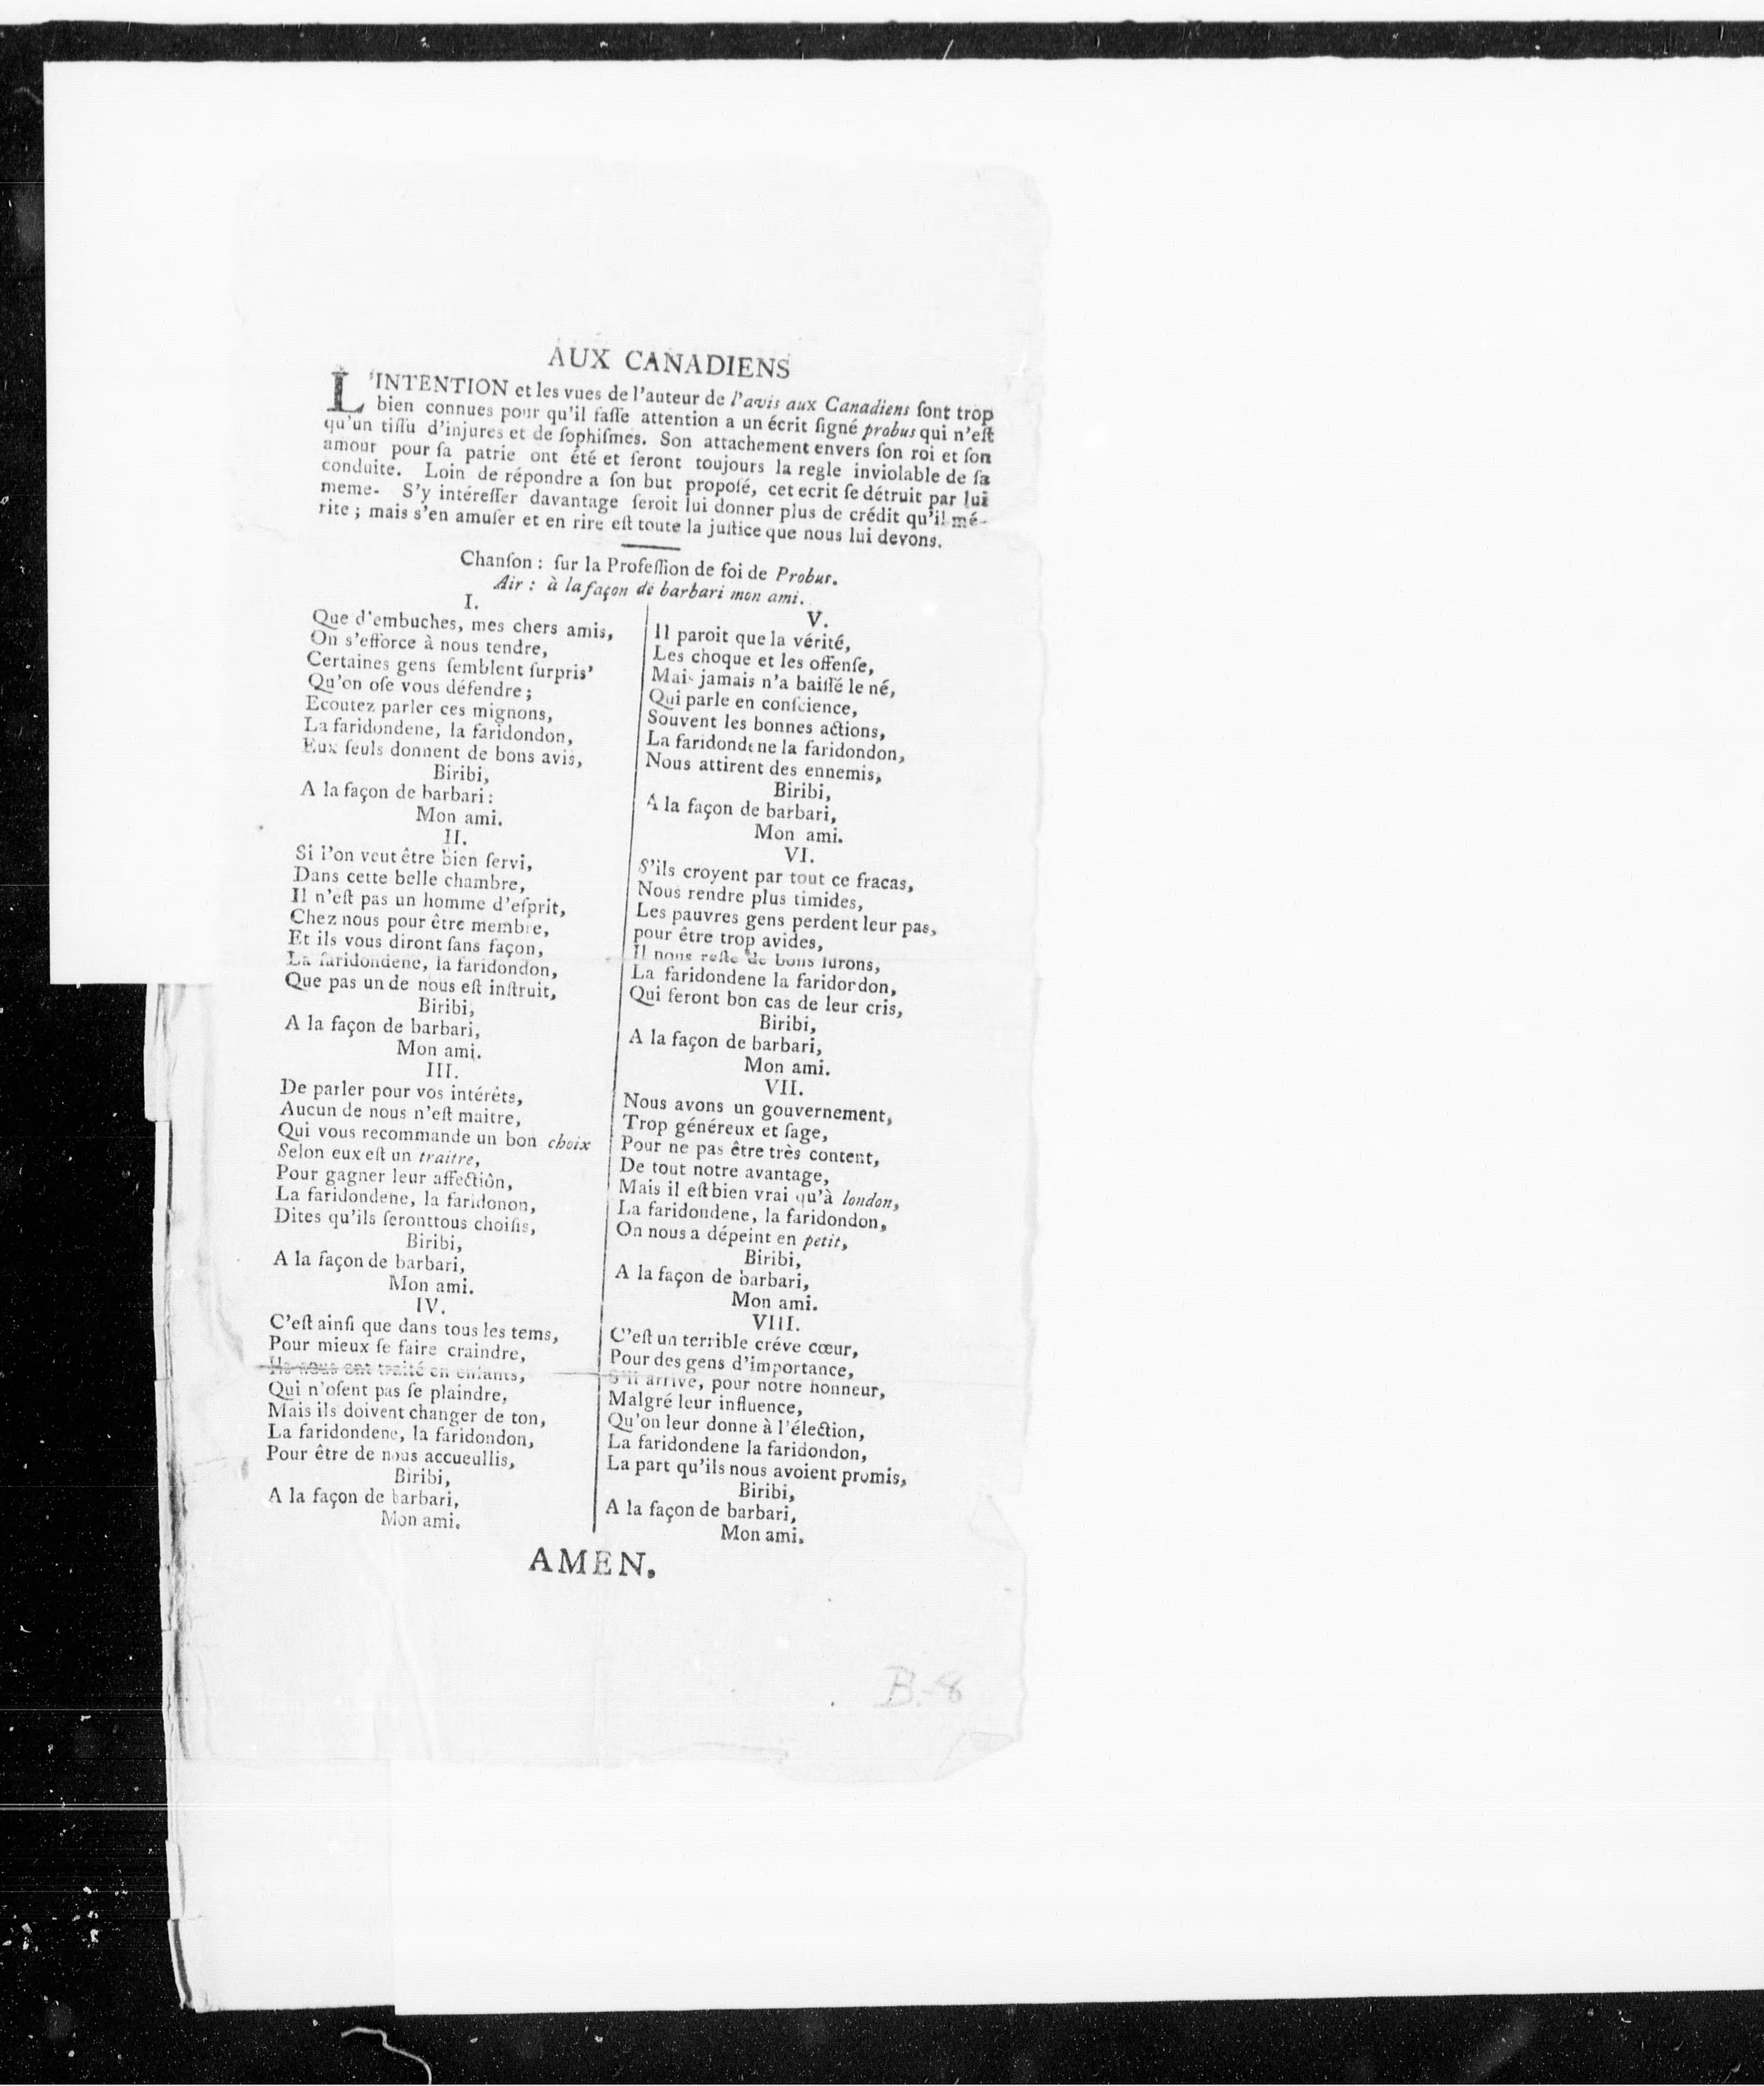 AUX CANADIENS
L'INTENTION et les vues de l'auteur de l'avis aux Canadiens ſont trop
bien connues pour qu'il faſſe attention a un écrit ſigné probus qui n'eſt
qu'un tiſſu d'injures et de ſophiſmes. Son attachement envers ſon roi et ſon
amour pour ſa patrie ont été et ſeront toujours la regle inviolable de ſa
conduite. Loin de répondre a ſon but propoſé, cet ecrit ſe détruit par lui
meme. S'y intéreſſer davantage ſeroit lui donner plus de crédit qu'il mé-
rite ; mais s'en amuſer et en rire eſt toute la juſtice que nous lui devons.
Chanſon : ſur la Profeſſion de foi de Probus.
Air : à la façon de barbari mon ami.
I.
Que d'embuches, mes chers amis,
On s'efforce à nous tendre,
Certaines gens ſemblent ſurpris'
Qu'on oſe vous défendre ;
Ecoutez parler ces mignons,
La faridondene, la faridondon,
Eux ſeuls donnent de bons avis,
Biribi,
A la façon de barbari :
Mon ami.
II.
Si l'on veut être bien ſervi,
Dans cette belle chambre,
Il n'eſt pas un homme d'eſprit,
Chez nous pour être membre,
Et ils vous diront ſans façon,
La faridondene, la faridondon,
Que pas un de nous eſt inſtruit,
Biribi,
A la façon de barbari,
Mon ami.
III.
De parler pour vos intérêts,
Aucun de nous n'eſt maitre,
Qui vous recommande un bon choix
Selon eux eſt un traitre,
Pour gagner leur affectiôn,
La faridondene, la faridonon,
Dites qu'ils ſeronttous choiſis,
Biribi,
A la façon de barbari,
Mon ami.
IV.
C'eſt ainſi que dans tous les tems,
Pour mieux ſe faire craindre,
Ils nous ont traité en enfants,
Qui n'oſent pas ſe plaindre,
Mais ils doivent changer de ton,
La faridondene, la faridondon,
Pour être de nous accueullis,
Biribi,
A la façon de barbari,
Mon ami.
V.
Il paroit que la vérité,
Les choque et les offenſe,
Mais jamais n'a baiſſé le né,
Qui parle en conſcience,
Souvent les bonnes actions,
La faridondene la faridondon,
Nous attirent des ennemis,
Biribi,
A la façon de barbari,
Mon ami.
VI.
S'ils croyent par tout ce fracas,
Nous rendre plus timides,
Les pauvres gens perdent leur pas,
pour être trop avides,
Il nous reſte de bons lurons,
La faridondene la faridordon,
Qui feront bon cas de leur cris,
Biribi,
A la façon de barbari,
Mon ami.
VII.
Nous avons un gouvernement,
Trop généreux et ſage,
Pour ne pas être très content,
De tout notre avantage,
Mais il eſt bien vrai qu'à london,
La faridondene, la faridondon,
On nous a dépeint en petit,
Biribi,
A la façon de barbari,
Mon ami.
VIII.
C'eſt un terrible créve cœur,
Pour des gens d'importance,
S'il arrive, pour notre honneur,
Malgré leur influence,
Qu'on leur donne à l'élection,
La faridondene la faridondon,
La part qu'ils nous avoient promis,
Biribi,
A la façon de barbari,
Mon ami.
AMEN.
B.-8